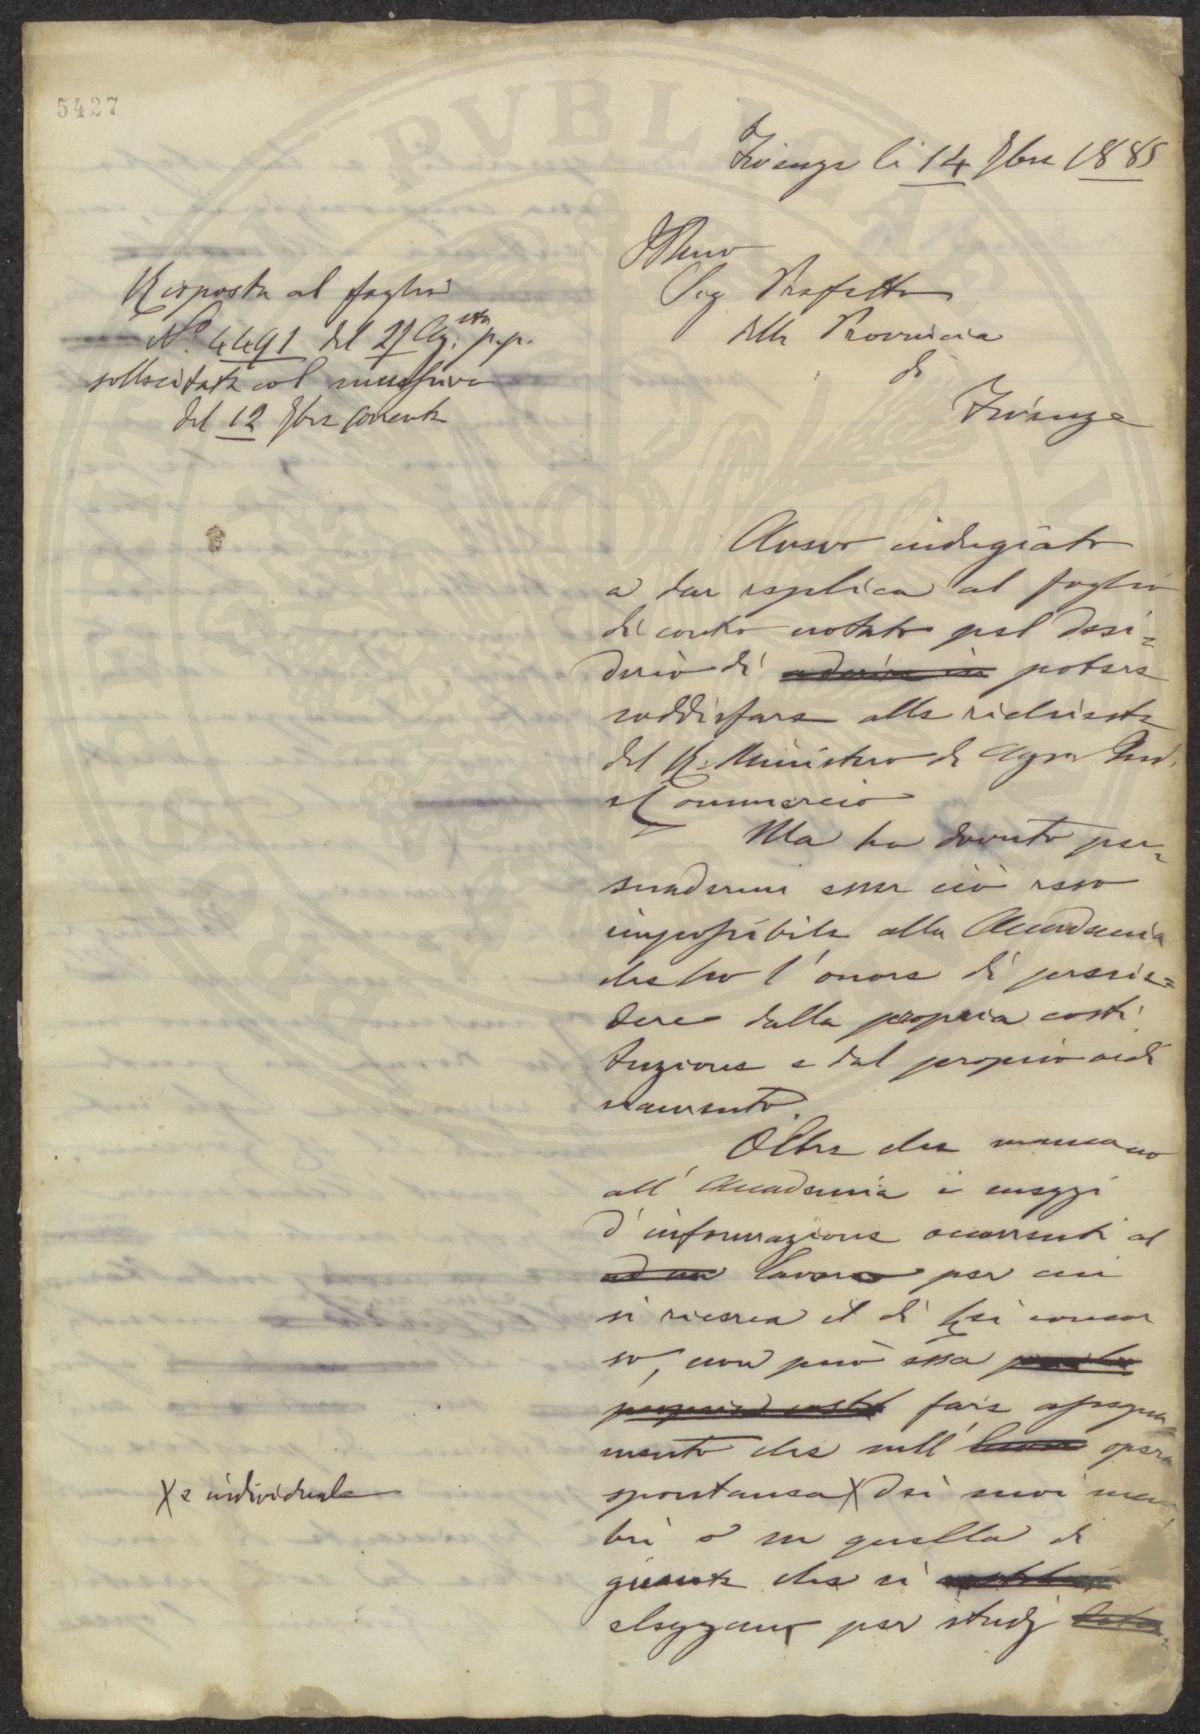 5427
Firenze li 14 9bre 1885
Illmo
Sig Prefetto
della Provincia
di
Firenze
Risposta al foglio
N.º 4491 del 27 Ag.sto p.p.
sollecitata col missiva
del 12 9bre corrente
Avevo indugiato
a dar replica al foglio
di contro notato pel desi=
derio di potere
soddisfare alle richieste
del R. Ministero di Agr. Ind.
e Commercio
Ma ho dovuto per=
suadermi esser ciò reso
impossibile alla Accademia
che ho l'onore di presie=
dere dalla propria costi
tuzione e dal proprio ordi
namento.
Oltre che mancano
all'Accademia i mezzi
d'informazione occorrenti al
ad un lavoro per cui
si ricerca il di Lei concor
so, non può essa
fare assegna
mento che sull' opera
spontanea X dei suoi mem
X e individuale
bri o su quella di
giunte che si
eleggano per studj